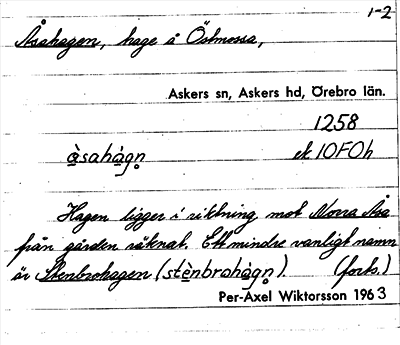 1-2
Åsahagen, hage å Östmossa,
Askers sn, Askers hd, Örebro län.
1258
àsahàgn̥ ek 10F0h
Hagen ligger i riktning mot Norra Åsa
från gården räknat. Ett mindre vanligt namn
är Stenbrohagen (stènbrohàgn̥). (forts.)
Per-Axel Wiktorsson 1963